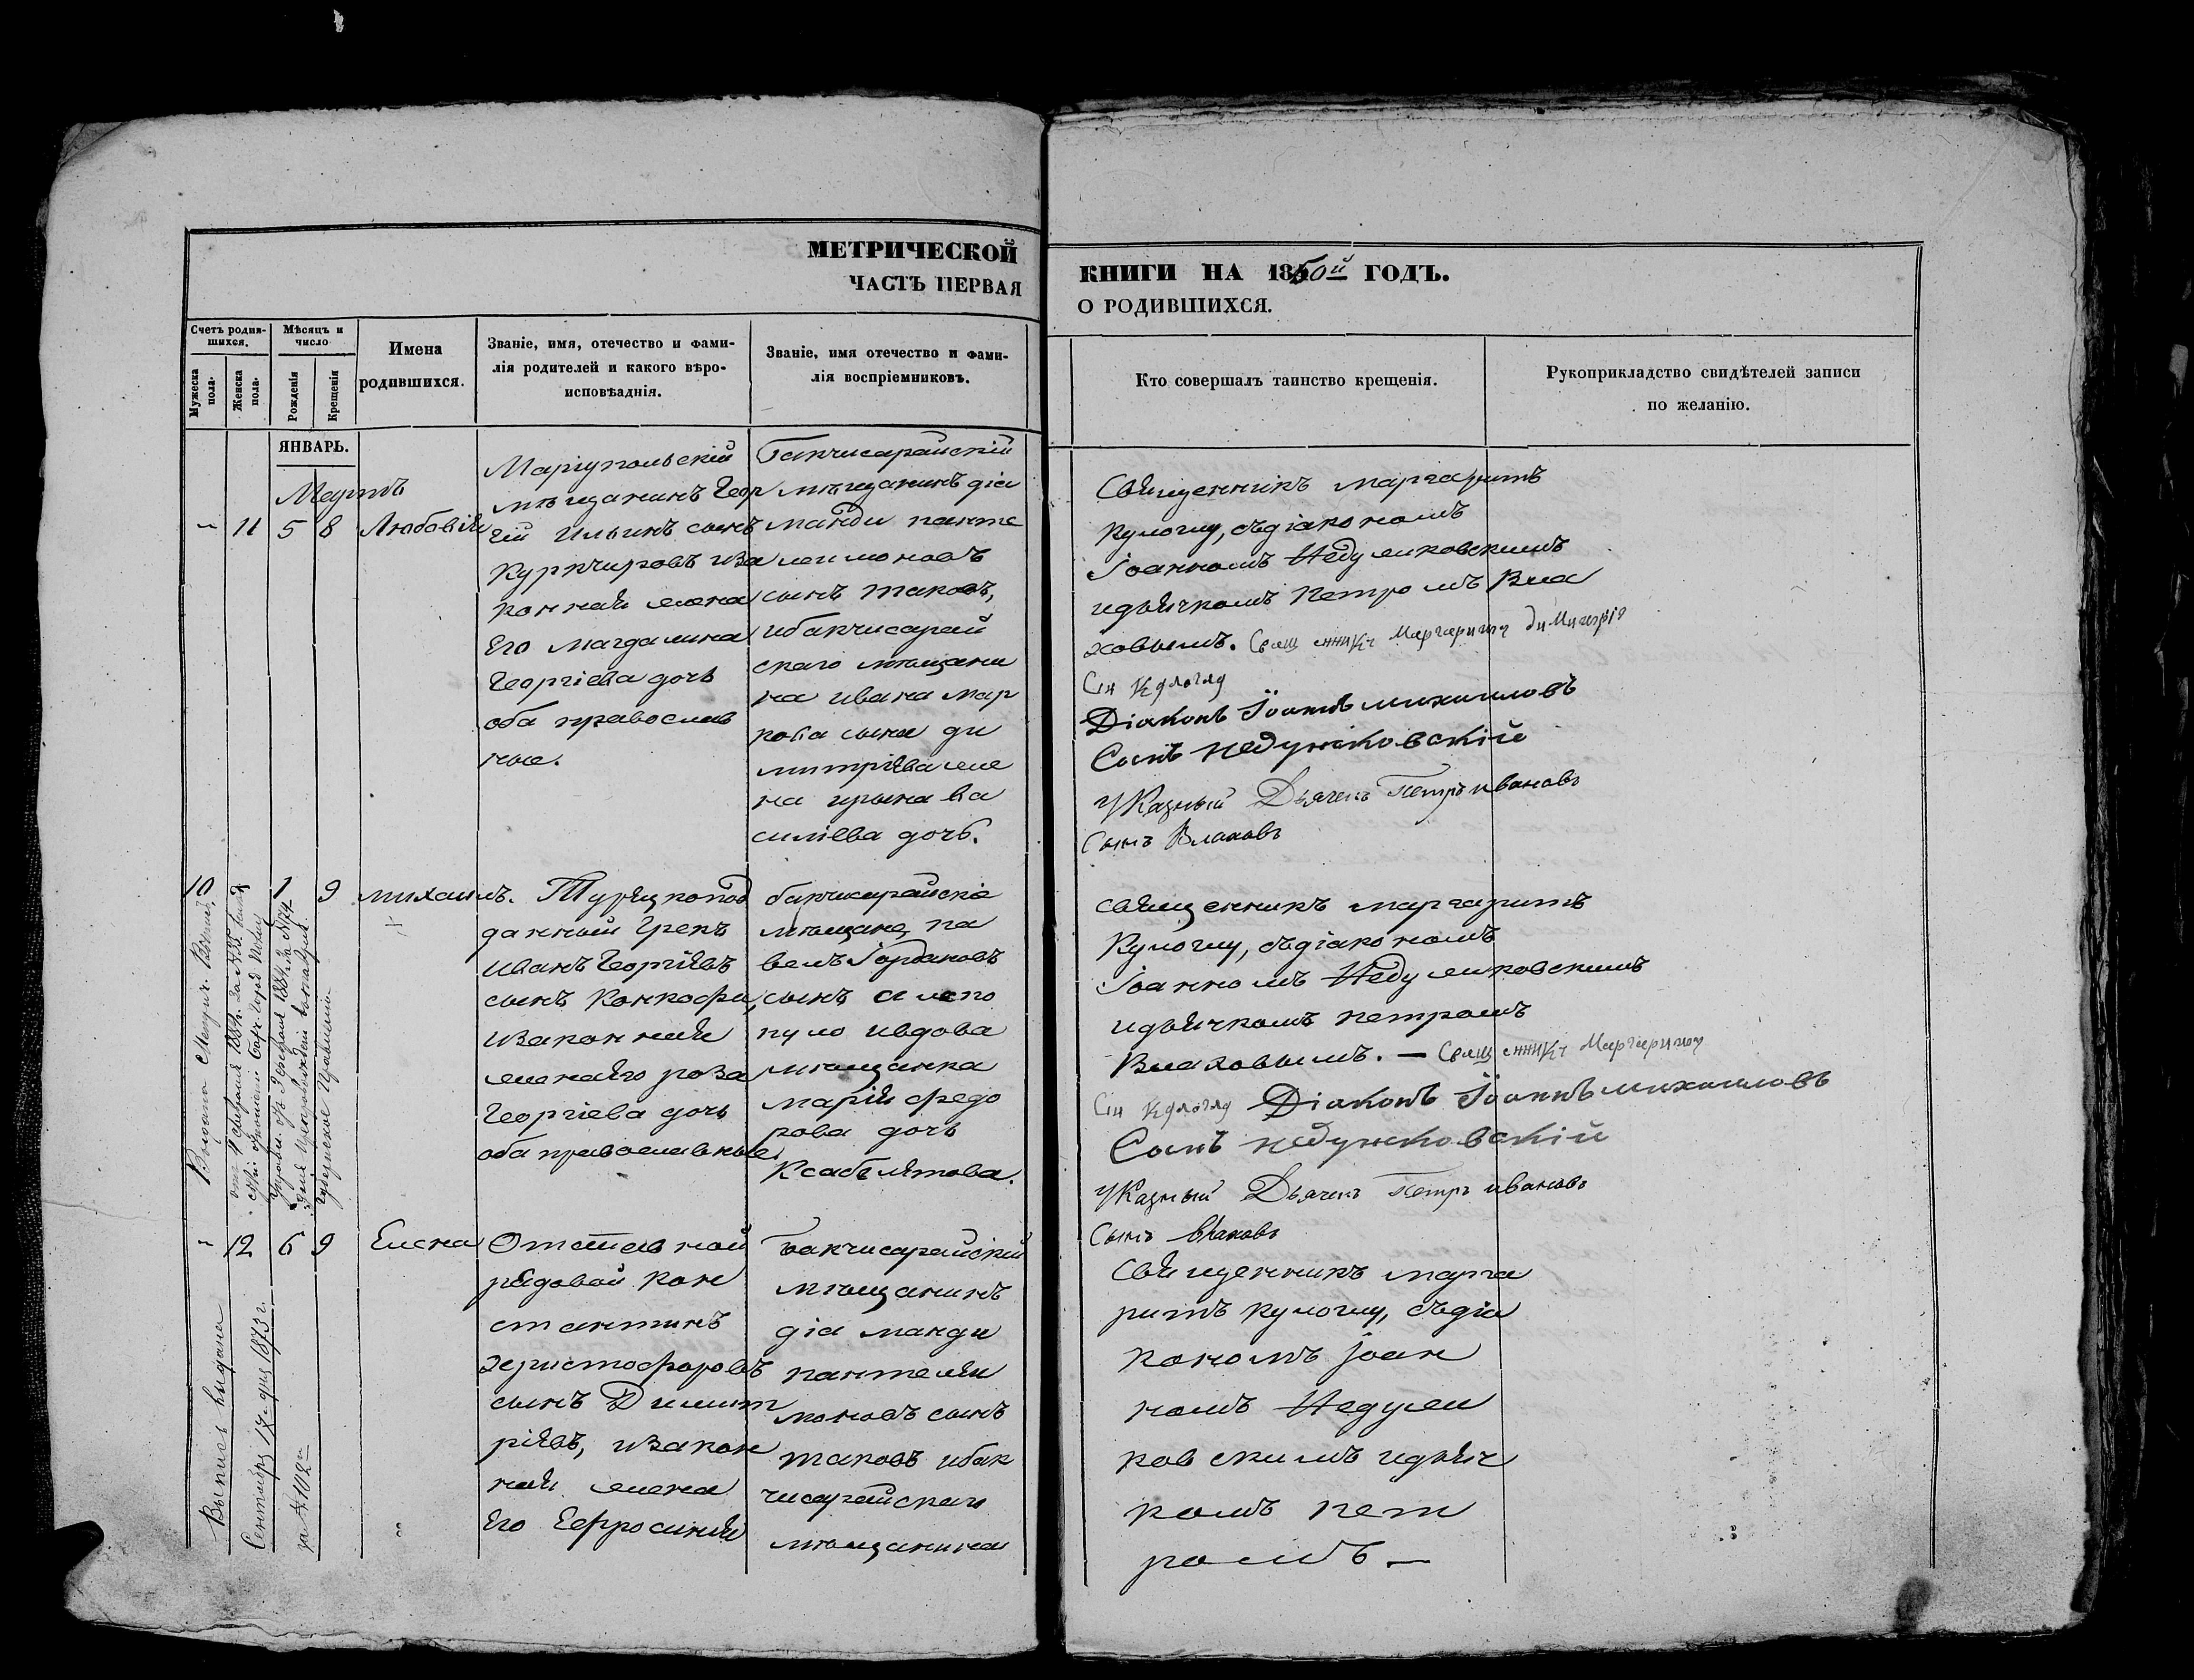 МЕТРИЧЕСКОЙ
ЧАСТЬ ПЕРВАЯ
КНИГИ НА 1850й ГОДЪ.
О РОДИВШИХСЯ.
Счетъ родив-
шихся.
Мужеска
пола.
Женска
пола.
Мѣсяцъ и
число
Рожденія
Крещенія
Имена
родившихся.
Званіе, имя, отечество и фами-
лія родителей и какого вѣро-
исповѣаднія.
Званіе, имя отечество и фами-
лія воспріемниковъ.
Кто совершалъ таинство крещенія.
Рукоприкладство свидѣтелей записи
по желанію.
ЯНВАРЬ.
Мартъ
11 5 8 Любовія
Маріупольскій
мѣщанинъ Геор
гій Ильинъ сынъ
Куркчировъ иза
конная жена
Его Магдалина
Георгіева дочь
оба православ
ные.
Бакчисарайскій
мѣщанинъ діа
манди панте
леимоновъ
сынъ таковъ,
ибакчисарай
скаго мѣщани
на ивана мар
кова сына ди
митріева жена
на ирына ва
силіева дочь.
Священникъ маргаритъ
Кулоглу, съдіакономъ
Іоанномъ Недумковскимъ
идьячкомъ Петромъ Вла
ховымъ. Священникъ Маргаритъ Димитрія
Сін Кулоглу
Діаконъ Іоаннъ михаиловъ
Сынъ Недумковскій
Указный Дьячекъ Петръ ивановъ
Сынъ Влаховъ
10 1 9 михаилъ.
Турецкопод
данный Грекъ
иванъ Георгіевъ
сынъ Конкофи,
изаконная
женаего роза
Георгіева дочь
оба православные
бакчисарайскіе
мѣщане, па
велъ Іордановъ
сынъ алепо
пуло ивдова
мѣщанка
марія федо
рова дочь
Ксабѣлятова.
священникъ маргаритъ
Кулоглу, съдіакономъ
Іоанномъ Недумковскимъ
идьячкомъ петромъ
Влаховымъ. — Священникъ Маргаритъ
Сін Кулоглу Діаконъ Іоаннъ михаиловъ
Сынъ Недумковскій
Указный Дьячекъ Петръ ивановъ
Сынъ Влаховъ
12 6 9 Елена
Отставной
рядовой Кон
стантинъ
христофоровъ
сынъ Димит
ріевъ, изакон
ная жена
Его Ефросинія
Бакчисарайскій
мѣщанинъ
діаманди
пантелеи
моновъ сынъ
таковъ ибак
чисарайскаго
мѣщанина
Священникъ марга
ритъ кулоглу, съдіа
кономъ Іоан
номъ Недумковскимъ идьяч
комъ пет
ромъ —
Выпись выдана
Сентября 17 дня 1873 г.
за №102м